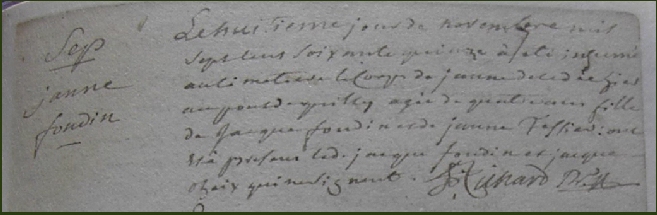 Sep
janne
foudin
Le huitieme jour de novembre mil
sept cens soixante quinze à eté inhumé
au cimetiere le Corps de janne decedee hier
au pont de agée de quatre ans fille
de Jacque foudin et de janne Tessier : ont
eté presens led. jacque foudin et jacque
qui ne signent . Richard